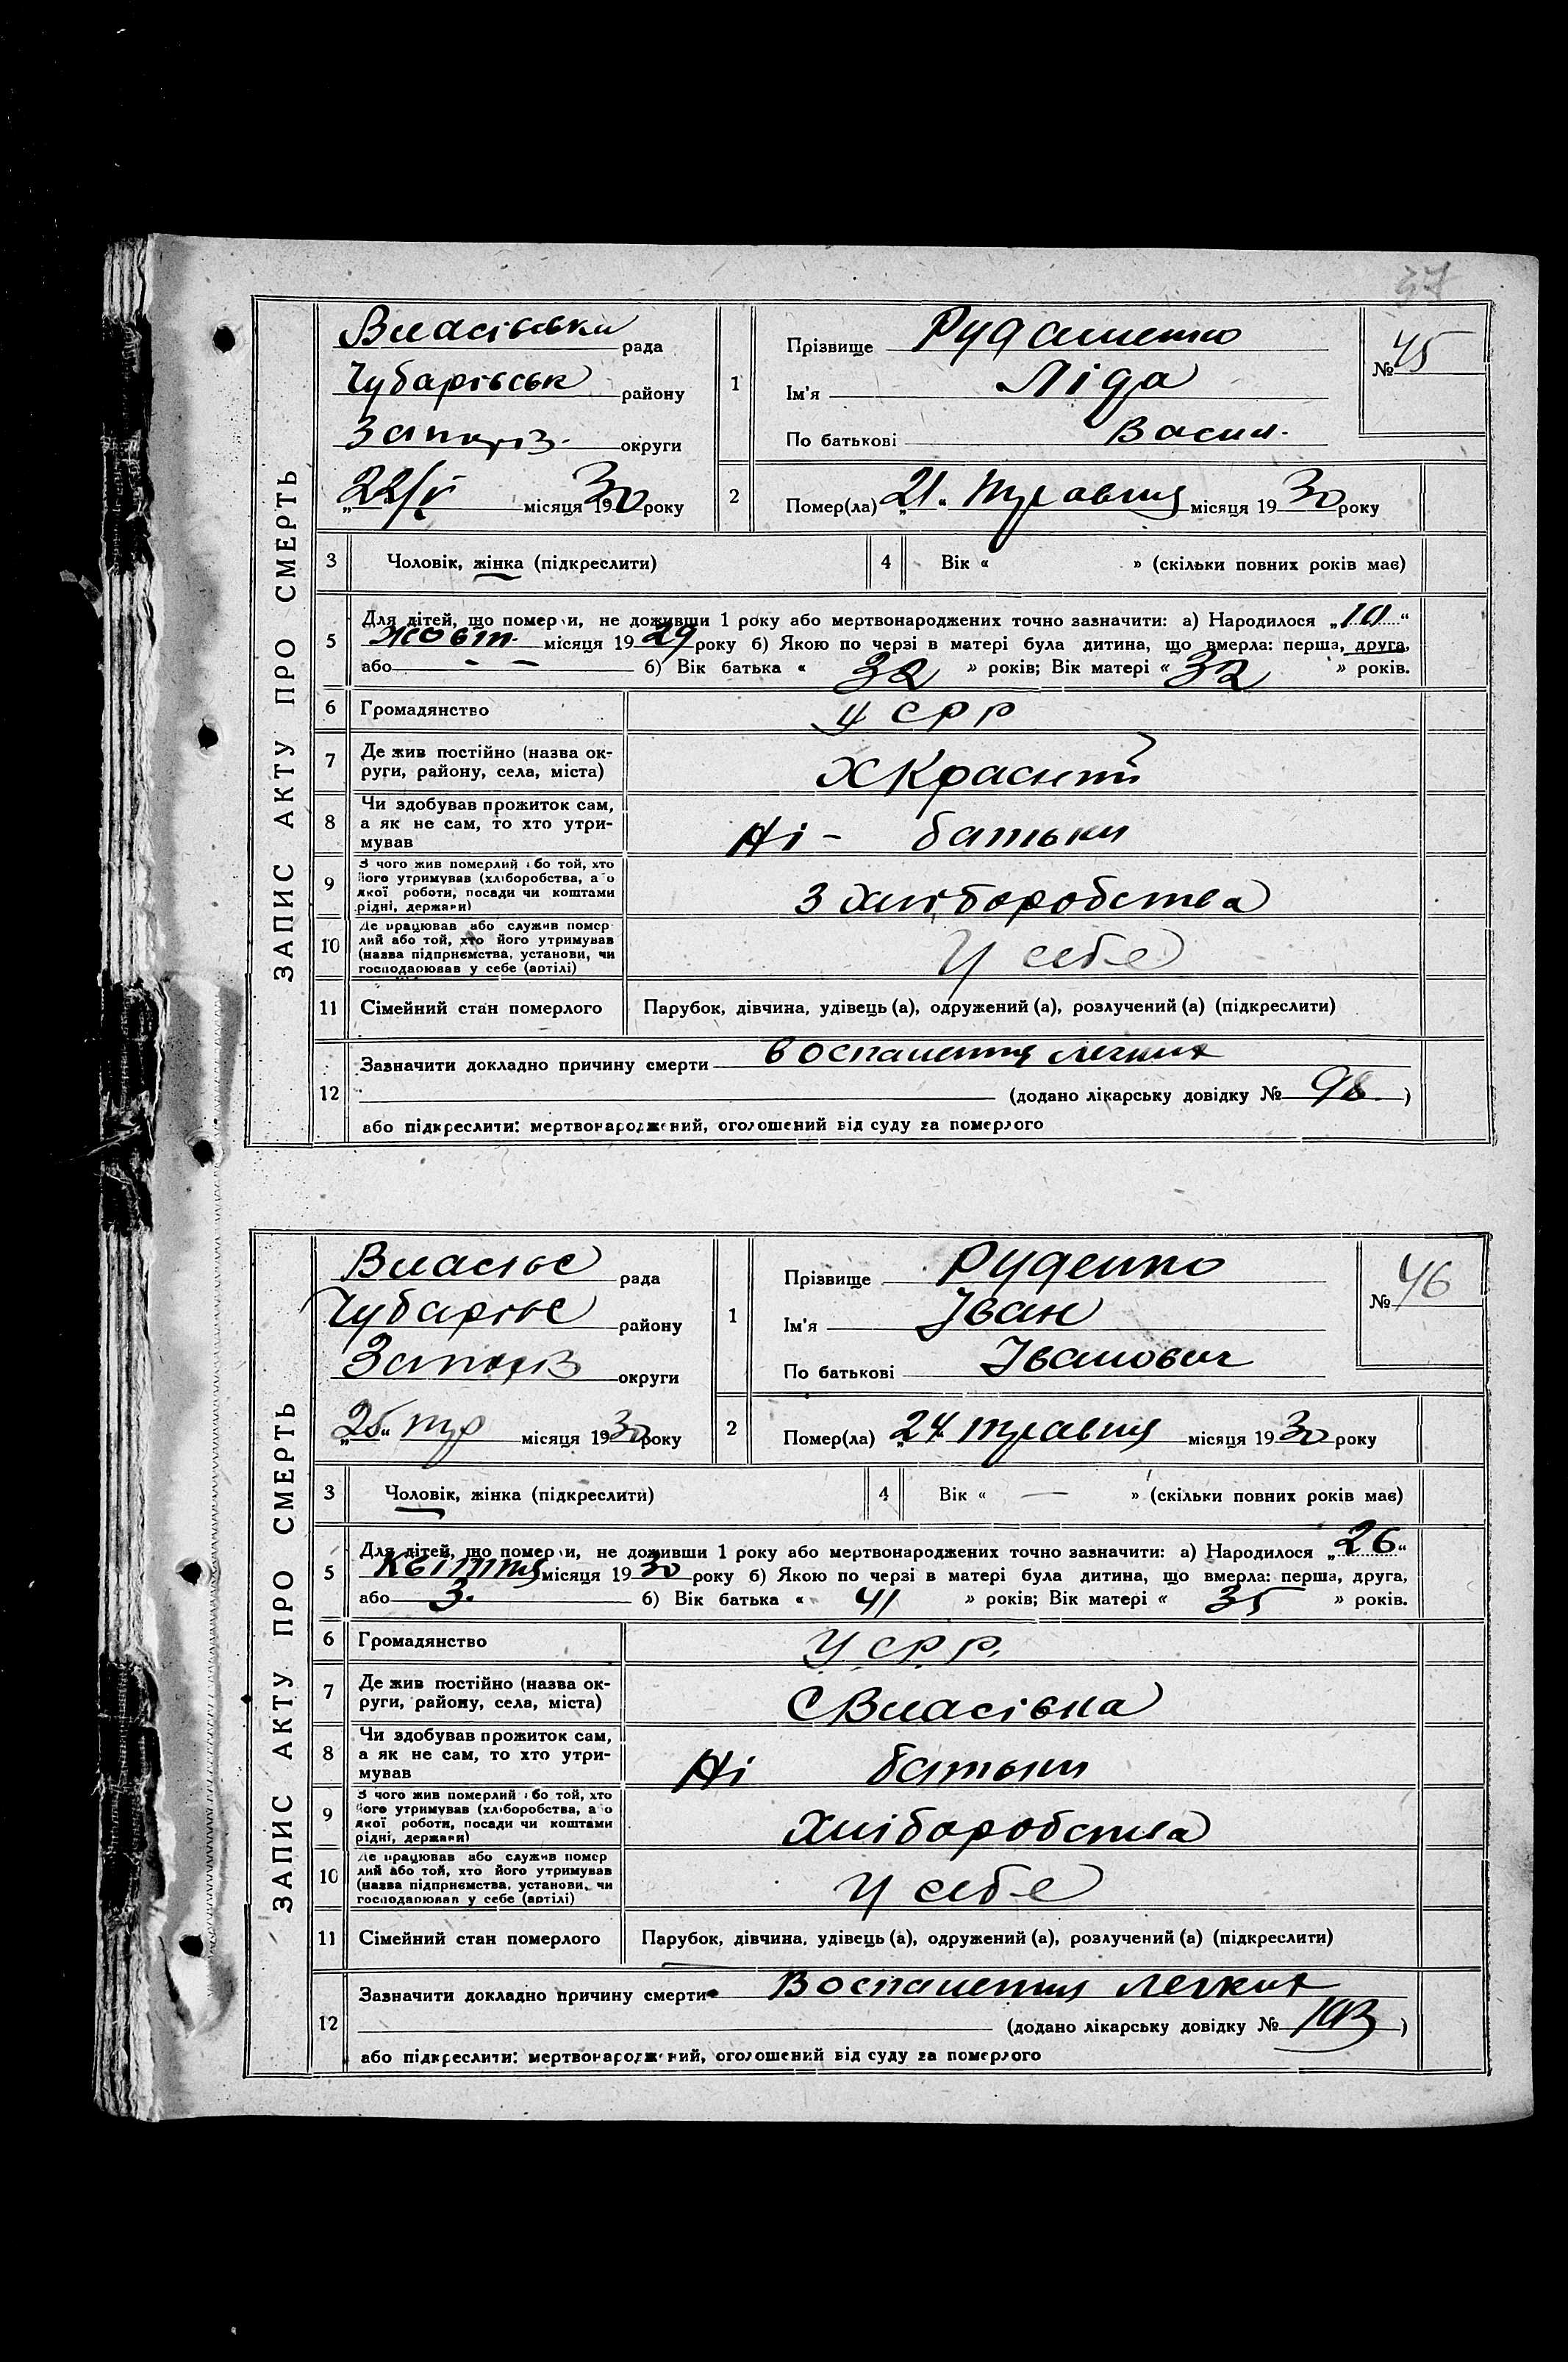 37
ЗАПИС АКТУ ПРО СМЕРТЬ
Власівськ рада
Чубарівськ району
Запоріз. округи
„22/V місяця 1930 року
1
Прізвище Рудашенко
Ім'я Ліда
По батькові Васил.
№ 45
2
Помер(ла) „21“ Травня місяця 1930 року
3 Чоловік, жінка (підкреслити)
4 Вік « » (скільки повних років має)
5 Для дітей, що померли, не доживши 1 року або мертвонароджених точно зазначити: а) Народилося „10“
Жовт. місяця 1929 року б) Якою по черзі в матері була дитина, що вмерла: перша, друга,
або - - б) Вік батька « 32 » років; Вік матері « 32 » років.
6 Громадянство УСРР
7 Де жив постійно (назва ок-
руги, району, села, міста) Х Красний
8 Чи здобував прожиток сам,
а як не сам, то хто утри-
мував Ні - батьки
9 З чого жив померлий або той, хто
його утримував (хліборобства, або
якої роботи, посади чи коштами
рідні, держави) З Хліборобства
10 Де працював або служив помер-
лий або той, хто його утримував
(назва підприємства, установи, чи
господарював у себе (артілі) У себе
11 Сімейний стан померлого Парубок, дівчина, удівець (а), одружений (а), розлучений (а) (підкреслити)
12 Зазначити докладно причину смерти воспаления легких
(додано лікарську довідку № 98. )
або підкреслити: мертвонароджений, оголошений від суду за померлого
ЗАПИС АКТУ ПРО СМЕРТЬ
Власівс рада
Чубарівс району
Запоріз округи
„25“ тр місяця 1930 року
1
Прізвище Руденко
Ім'я Іван
По батькові Іванович
№ 46
2
Помер(ла) „24“ травня місяця 1930 року
3 Чоловік, жінка (підкреслити)
4 Вік « — » (скільки повних років має)
5 Для дітей, що померли, не доживши 1 року або мертвонароджених точно зазначити: а) Народилося „26“
Квітня місяця 1930 року б) Якою по черзі в матері була дитина, що вмерла: перша, друга,
або 3. б) Вік батька « 41 » років; Вік матері « 35 » років.
6 Громадянство УСРР.
7 Де жив постійно (назва ок-
руги, району, села, міста) С Власівка
8 Чи здобував прожиток сам,
а як не сам, то хто утри-
мував Ні батьки
9 З чого жив померлий або той, хто
його утримував (хліборобства, або
якої роботи, посади чи коштами
рідні, держави) Хліборобства
10 Де працював або служив помер-
лий або той, хто його утримував
(назва підприємства, установи, чи
господарював у себе (артілі) У себе
11 Сімейний стан померлого Парубок, дівчина, удівець (а), одружений (а), розлучений (а) (підкреслити)
12 Зазначити докладно причину смерти Воспаления легких
(додано лікарську довідку № 103 )
або підкреслити: мертвонароджений, оголошений від суду за померлого